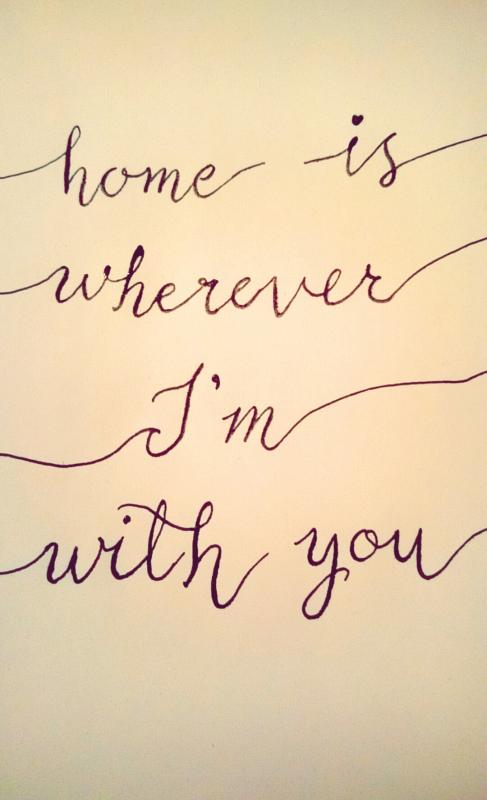 home is
wherever
I'm
with you